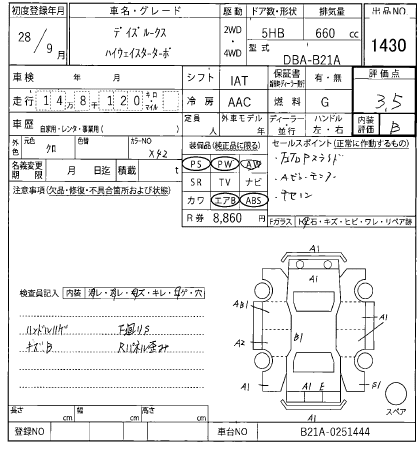 初度登録年月 車名・グレード 駆動 ドア数・形状 排気量 出品NO
28/9月 デイズルークス ハイウェイスターターボ 2WD・4WD 5HB 660 cc 1430
型式 DBA-B21A
車検 年 月 シフト IAT 保証書 有・無 評価点
走行 14万8千120 キロ・マイル 冷房 AAC 燃料 G 3.5
車歴 自家用・レンタ・事業用( ) 定員 人 外車モデル 年 ディーラー 並行 ハンドル 左・右 内装評価 B
外色 元色 クロ 色替 カラーNO X42
装備品(純正品に限る) セールスポイント(正常に作動するもの)
名義変更期限 月 日 積載 t
PS PW AW
SR TV ナビ
カワ エアB ABS
R券 8,860 円
注意事項(欠品・修復・不具合箇所および状態)
Aモニター
ナビ
Fガラス
石・キズ・ヒビ・ワレ・リペア跡
検査員記入 内装
ハンドルハゲ 下廻りS
キズB Rパネル歪み
A1
A1
AB1
A2
B1
A1
A1 E
S1
A1
スペア
長さ cm 幅 cm 高さ cm
登録NO 車台NO B21A-0251444